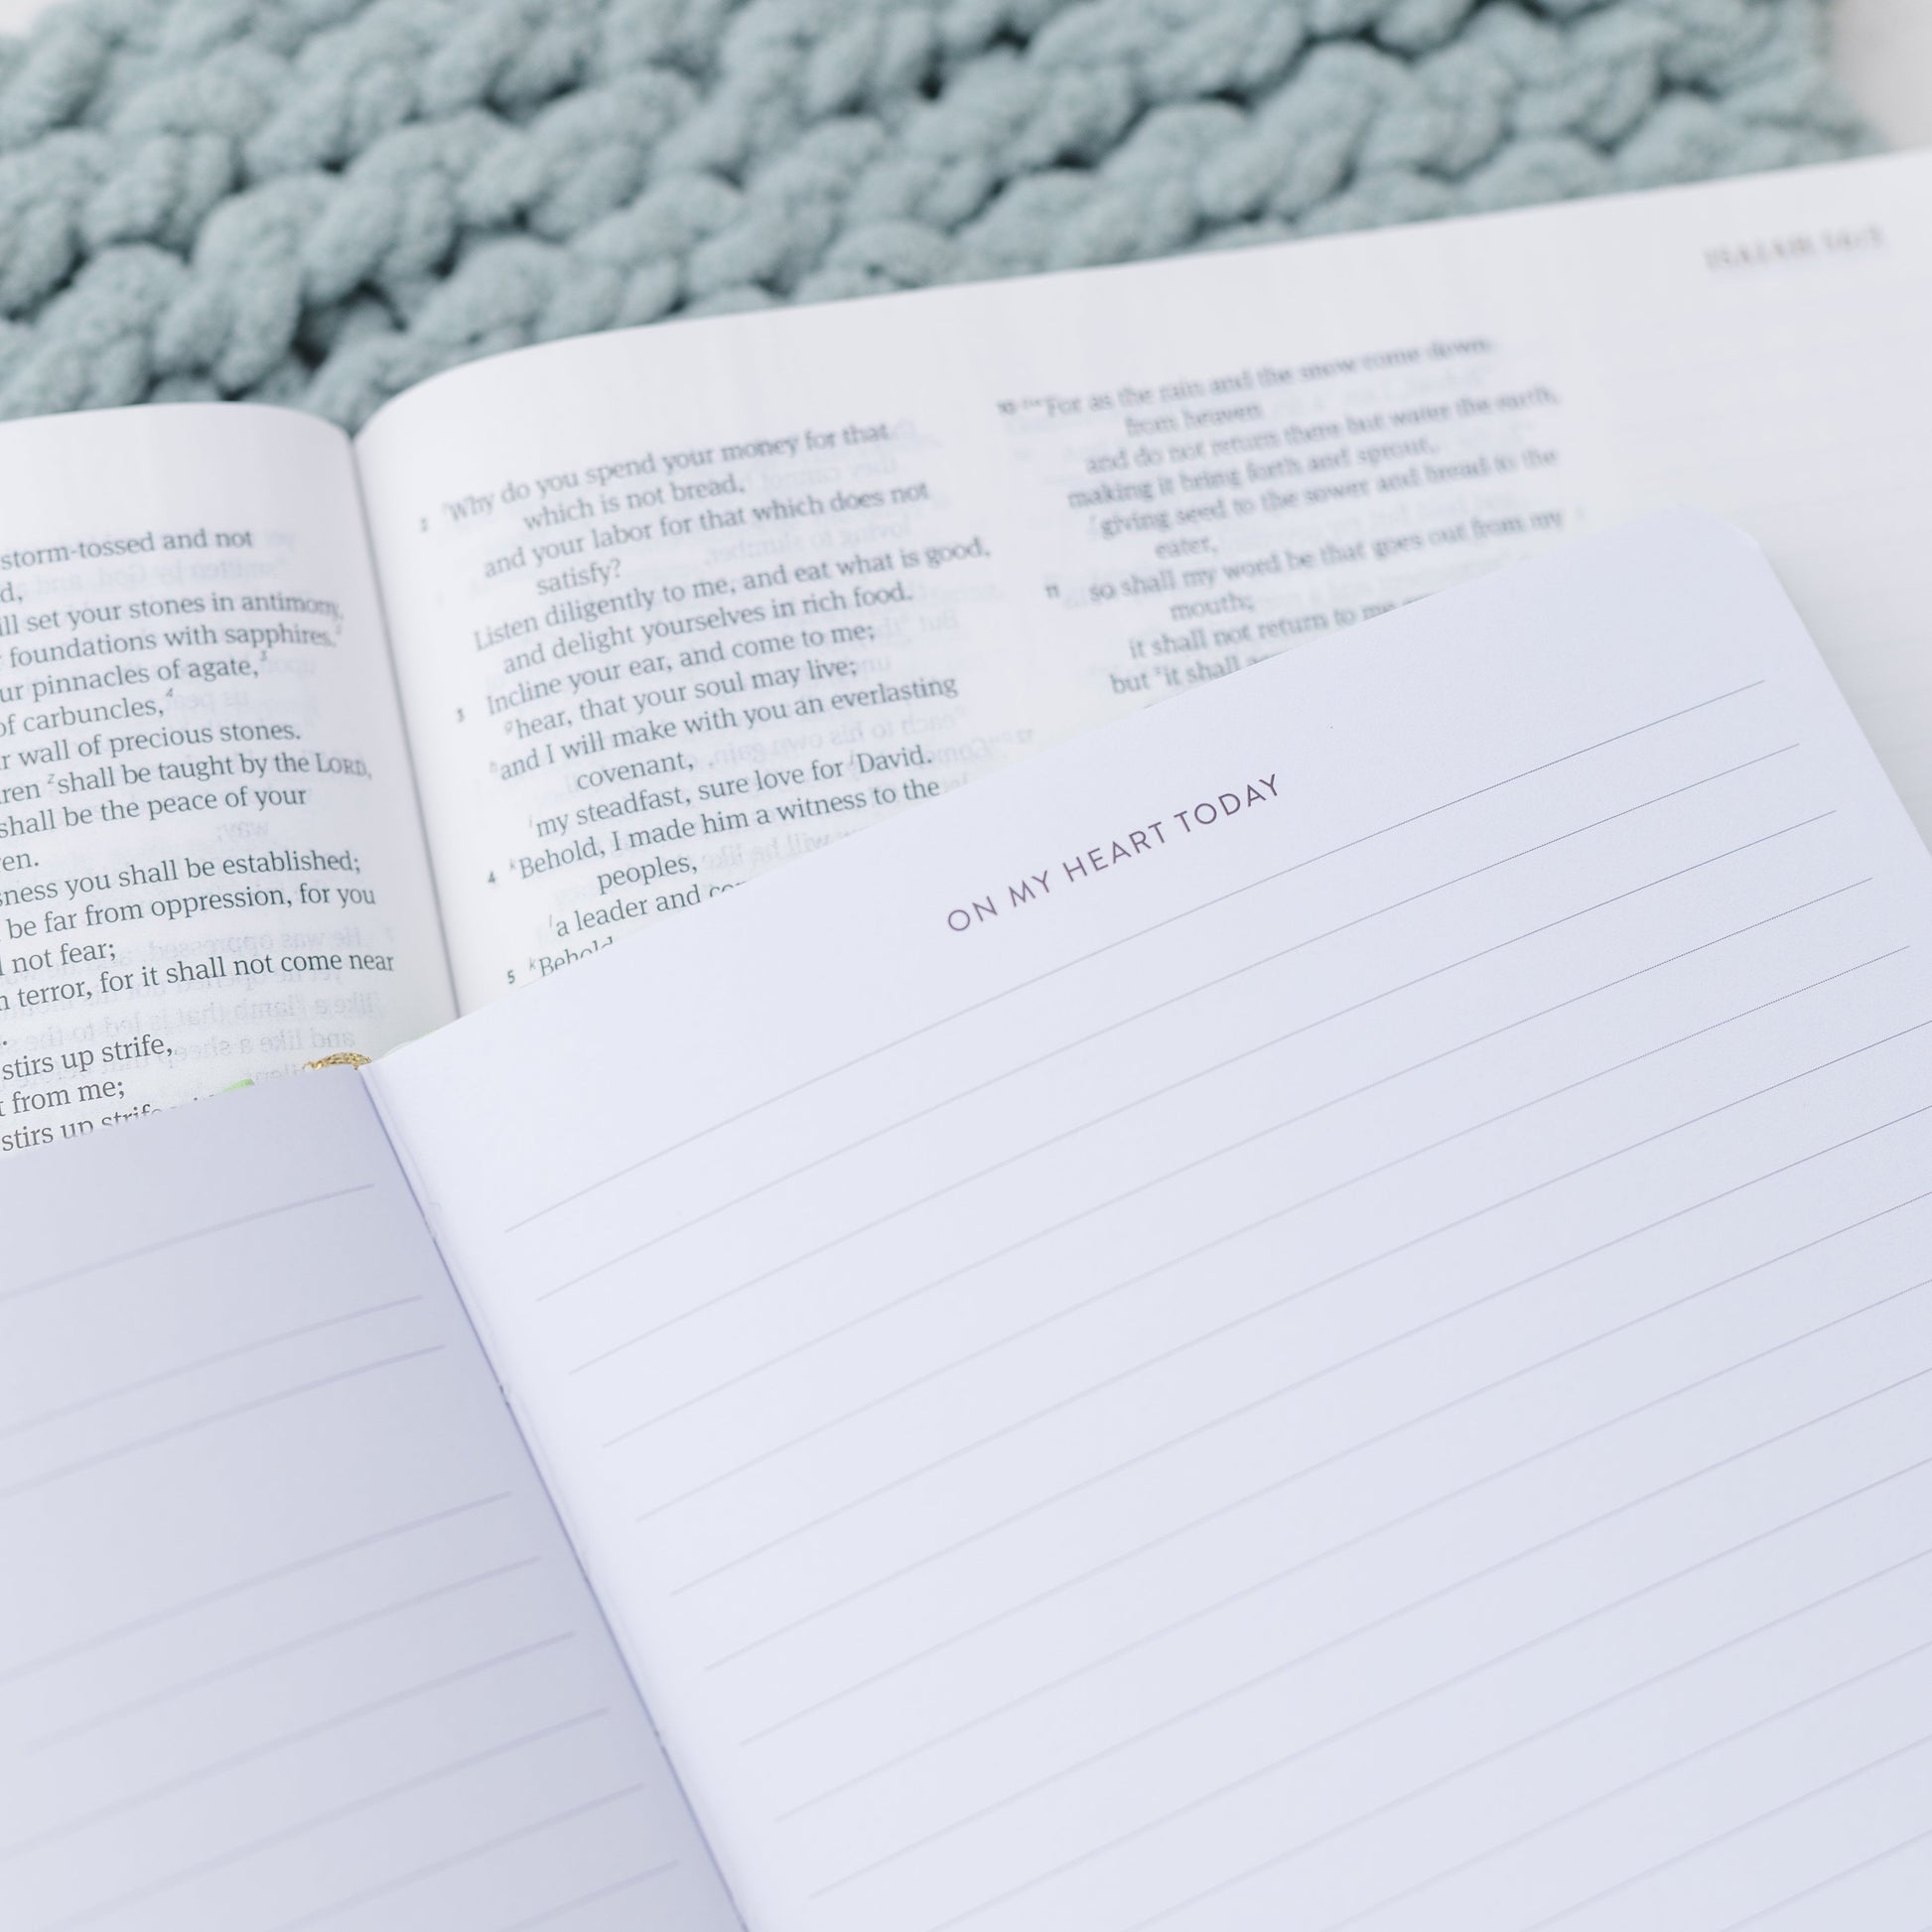 storm-tossed and not
d,
ill set your stones in antimony,
foundations with sapphires.
ur pinnacles of agate,³
of carbuncles,⁴
r wall of precious stones.
ren ᶻshall be taught by the LORD,
shall be the peace of your
en.
sness you shall be established;
be far from oppression, for you
not fear;
terror, for it shall not come near
stirs up strife,
from me;
stirs up strife
2 Why do you spend your money for that
which is not bread,
and your labor for that which does not
satisfy?
Listen diligently to me, and eat what is good,
and delight yourselves in rich food.
3 Incline your ear, and come to me;
ᵍhear, that your soul may live;
ʰand I will make with you an everlasting
covenant,
ⁱmy steadfast, sure love for ʲDavid.
4 ᵏBehold, I made him a witness to the
peoples,
ˡa leader and
5 ᵏBehold
10 For as the rain and the snow come down
from heaven
and do not return there but water the earth,
making it bring forth and sprout,
giving seed to the sower and bread to the
eater,
11 so shall my word be that goes out from my
mouth;
it shall not return to me
but it shall
ISAIAH
ON MY HEART TODAY